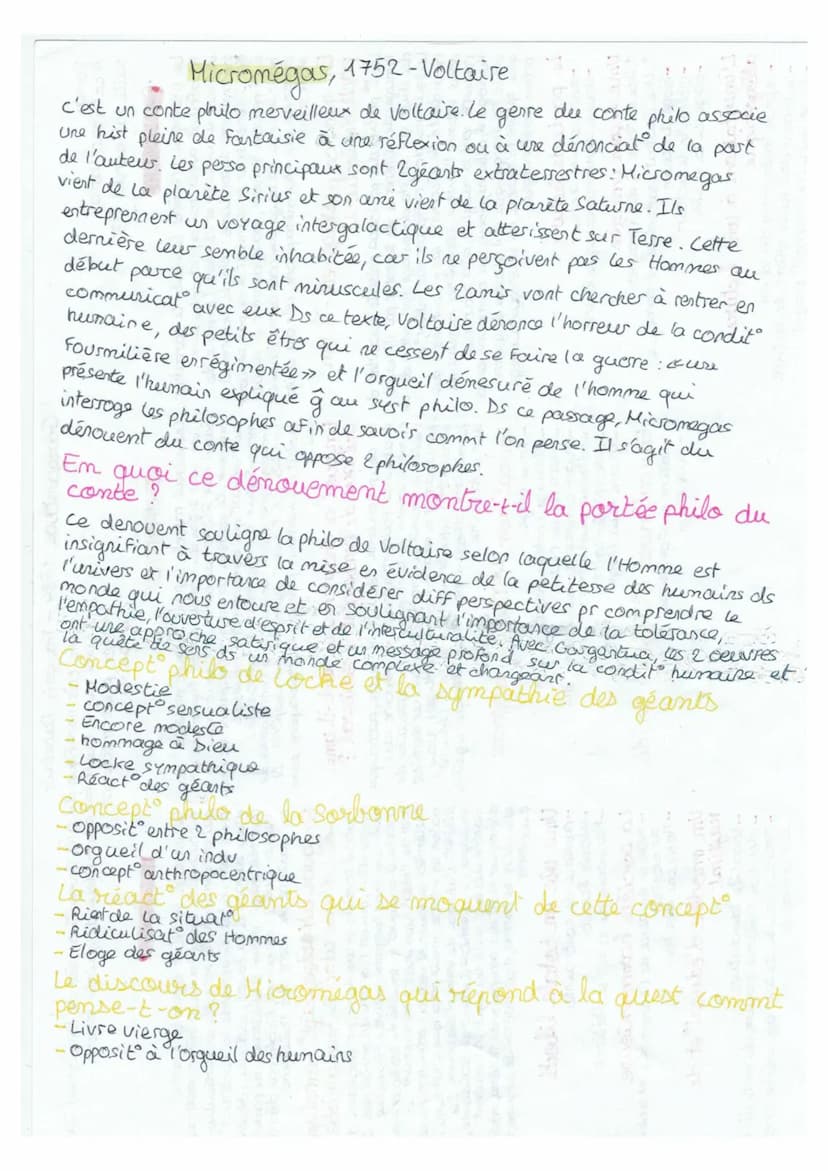 Micromégas, 1752 - Voltaire
C'est un conte philo merveilleux de Voltaire. Le genre du conte philo associe
une hist pleine de fantaisie à une réflexion ou à une dénonciat° de la part
de l'auteur. Les perso principaux sont 2 géants extraterrestres : Micromegas
vient de la planète Sirius et son ami vient de la planète Saturne. Ils
entreprennent un voyage intergalactique et atterissent sur Terre. Cette
dernière leur semble inhabitée, car ils ne perçoivent pas les Hommes au
début parce qu'ils sont minuscules. Les 2 amis vont chercher à rentrer en
communicat° avec eux Ds ce texte, Voltaire dénonce l'horreur de la condit°
humaine, des petits êtres qui ne cessent de se faire la guerre : « une
fourmilière enrégimentée » et l'orgueil démesuré de l'homme qui
présente l'humain expliqué ĝ au syst philo. Ds ce passage, Micromegas
interroge les philosophes afin de savoir commt l'on pense. Il s'agit du
dénouent du conte qui oppose 2 philosophes.
En quoi ce dénouement montre-t-il la portée philo du
conte ?
Ce denouent souligne la philo de Voltaire selon laquelle l'Homme est
insignifiant à travers la mise en évidence de la petitesse des humains ds
l'univers et l'importance de considérer diff perspectives pr comprendre le
monde qui nous entoure et en soulignant l'importance de la tolérance,
l'empathie, l'ouverture d'esprit et de l'interculturalité. Avec Gargantua, les 2 oeuvres
ont une approche satirique et un message profond sur la condit° humaine et
la quête de sens ds un monde complexe et changeant.
Concept° philo de Locke et la sympathie des géants
- Modestie
- concept° sensualiste
- Encore modeste
- hommage à Dieu
- Locke sympathique
- Réact° des géants
Concept° philo de la Sorbonne
- Opposit° entre 2 philosophes
- orgueil d'un indu
- concept° anthropocentrique
La réact° des géants qui se moquent de cette concept°
- Rient de la situat°
- Ridiculisat° des Hommes
- Eloge des géants
Le discours de Micromégas qui répond à la quest commt
pense-t-on ?
- Livre vierge
- Opposit° à l'orgueil des humains